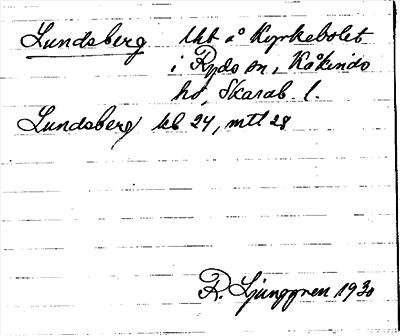 Lundsberg Ubt å Kyrkebolet
i Ryds sn, Kåkinds
hd, Skarab. l.
Lundsberg kb 24, mtl 28
R. Ljunggren 1930